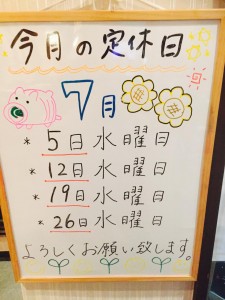 今月の定休日
7月
* 5日水曜日
* 12日水曜日
* 19日水曜日
* 26日水曜日
よろしくお願い致します。